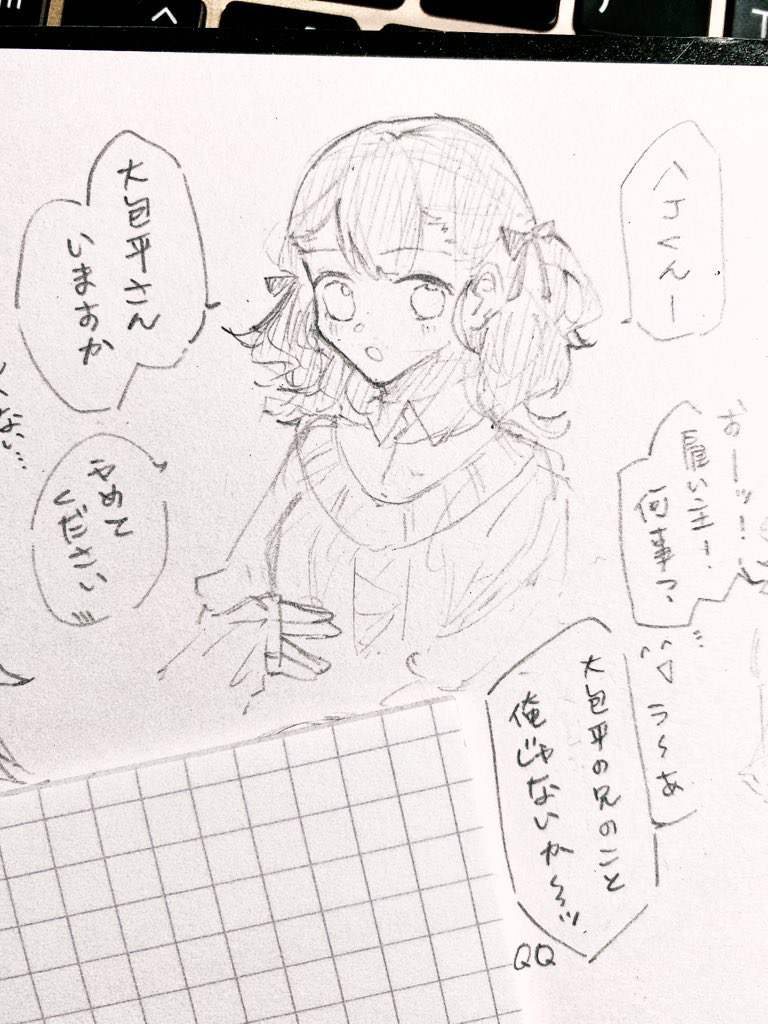 へしくんー
おーッ!
雇い主!
何事?
うあ
大包平の兄のこと
俺じゃないか〜
QQ
大包平さん
いますか
やめて
ください
ない…